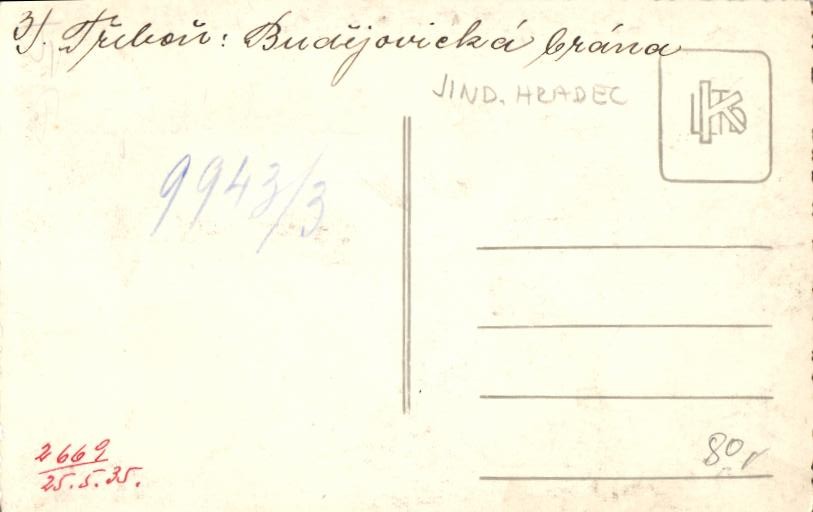 3/. Třeboň: Budějovická brána
JIND. HRADEC
9943/3
2669
25.5.35.
80,-